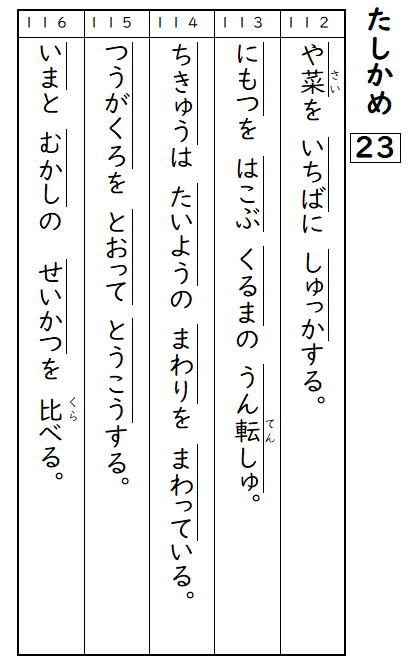 たしかめ
23
112
や菜を いちばに しゅっかする。
さい
113
にもつを はこぶ くるまの うん転しゅ。
てん
114
ちきゅうは たいようの まわりを まわっている。
115
つうがくろを とおって とうこうする。
116
いまと むかしの せいかつを 比べる。
くら